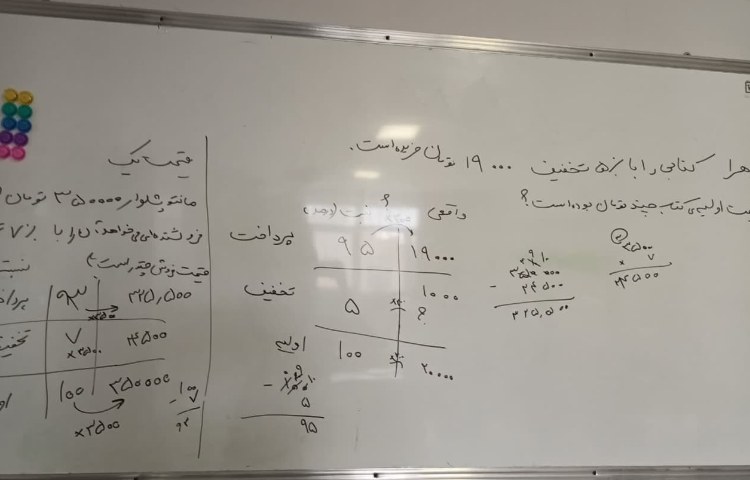 هرا کتابی را با ٪۵ تخفیف ۱۹۰۰۰ تومان خریده است.
ت اولیه‌ی کتاب چند تومان بوده است؟
واقعی
پرداخت ۹۵ ۱۹۰۰۰
تخفیف ۵ ۱۰۰۰
؟
اولیه ۱۰۰ ۲۰۰۰۰
- ۵
۹۵
۳۵۰۰
× ۷
۲۴۵۰۰
- ۲۴۵۰۰
۳۲۵,۵۰۰
قیمت یک
مانتو شلوار ۳۵۰۰۰۰ تومان
فروشنده‌ای می‌خواهد آن را با ٪۷
قیمت فروش چقدر است؟
نسبت
پردا ۹۳ ۳۲۵,۵۰۰
×۳۵۰۰
تخفیف ۷ ۲۴۵۰۰
×۳۵۰۰
او ۱۰۰ ۳۵۰۰۰۰
×۳۵۰۰
۱۰۰
- ۷
۹۳